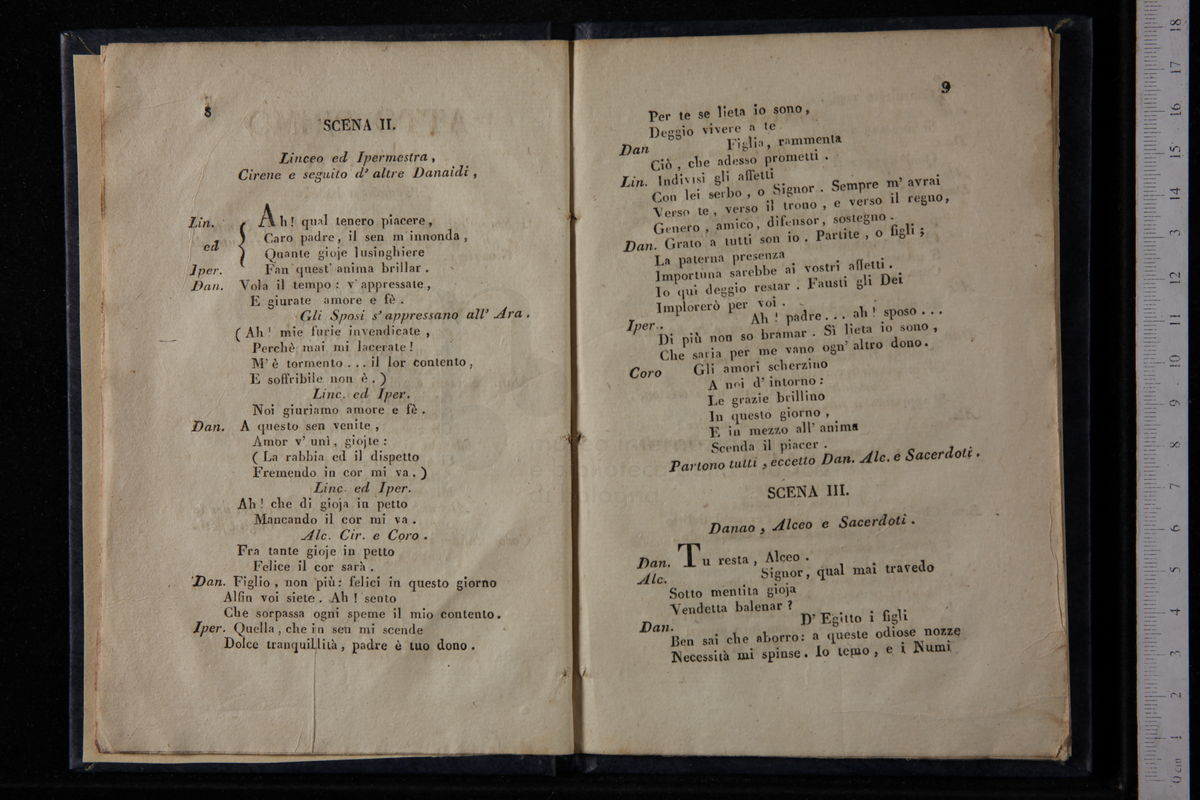 8
SCENA II.
Linceo ed Ipermestra,
Cirene e seguito d' altre Danaidi,
Lin. Ah! qual tenero piacere,
ed Caro padre, il sen m'innonda,
Quante gioje lusinghiere
Iper. Fan quest' anima brillar.
Dan. Vola il tempo: v' appressate,
E giurate amore e fè.
Gli Sposi s' appressano all' Ara.
(Ah! mie furie invendicate,
Perchè mai mi lacerate!
M' è tormento... il lor contento,
E soffribile non è.)
Linc. ed Iper.
Noi giuriamo amore e fè.
Dan. A questo sen venite,
Amor v' unì, giojte:
(La rabbia ed il dispetto
Fremendo in cor mi va.)
Linc. ed Iper.
Ah! che di gioja in petto
Mancando il cor mi va.
Alc. Cir. e Coro.
Fra tante gioje in petto
Felice il cor sarà.
Dan. Figlio, non più: felici in questo giorno
Alfin voi siete. Ah! sento
Che sorpassa ogni speme il mio contento.
Iper. Quella, che in sen mi scende
Dolce tranquillità, padre è tuo dono.
9
Per te se lieta io sono,
Deggio vivere a te
Dan Figlia, rammenta
Ciò, che adesso prometti.
Lin. Indivisi gli affetti
Con lei serbo, o Signor. Sempre m' avrai
Verso te, verso il trono, e verso il regno,
Genero, amico, difensor, sostegno.
Dan. Grato a tutti son io. Partite, o figli;
La paterna presenza
Importuna sarebbe ai vostri affetti.
Io qui deggio restar. Fausti gli Dei
Implorerò per voi.
Iper.. Ah! padre... ah! sposo...
Di più non so bramar. Sì lieta io sono,
Che saria per me vano ogn' altro dono.
Coro Gli amori scherzino
A noi d' intorno:
Le grazie brillino
In questo giorno,
E in mezzo all' anima
Scenda il piacer.
Partono tutti, eccetto Dan. Alc. e Sacerdoti.
SCENA III.
Danao, Alceo e Sacerdoti.
Dan. Tu resta, Alceo.
Alc. Signor, qual mai travedo
Sotto mentita gioja
Vendetta balenar?
Dan. D' Egitto i figli
Ben sai che aborro: a queste odiose nozze
Necessità mi spinse. Io temo, e i Numi